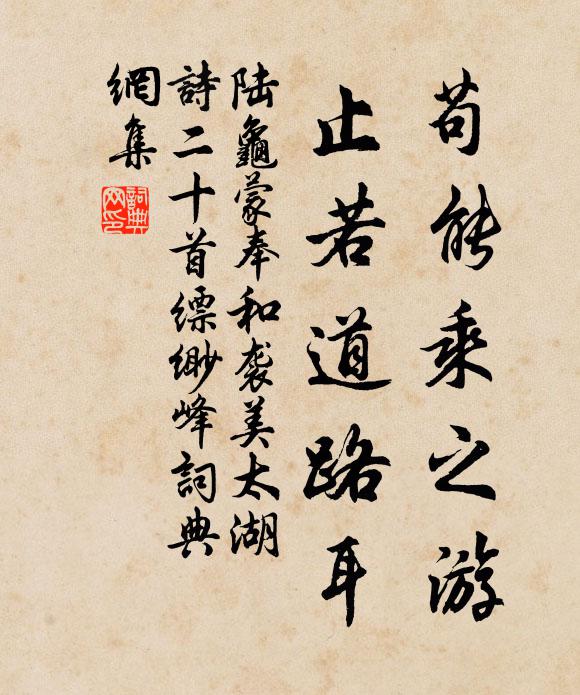 苟能乘之游
止若道路耳
陆龜蒙奉和袭美太湖
詩二十首缥缈峰詞典
網集
詞典網印